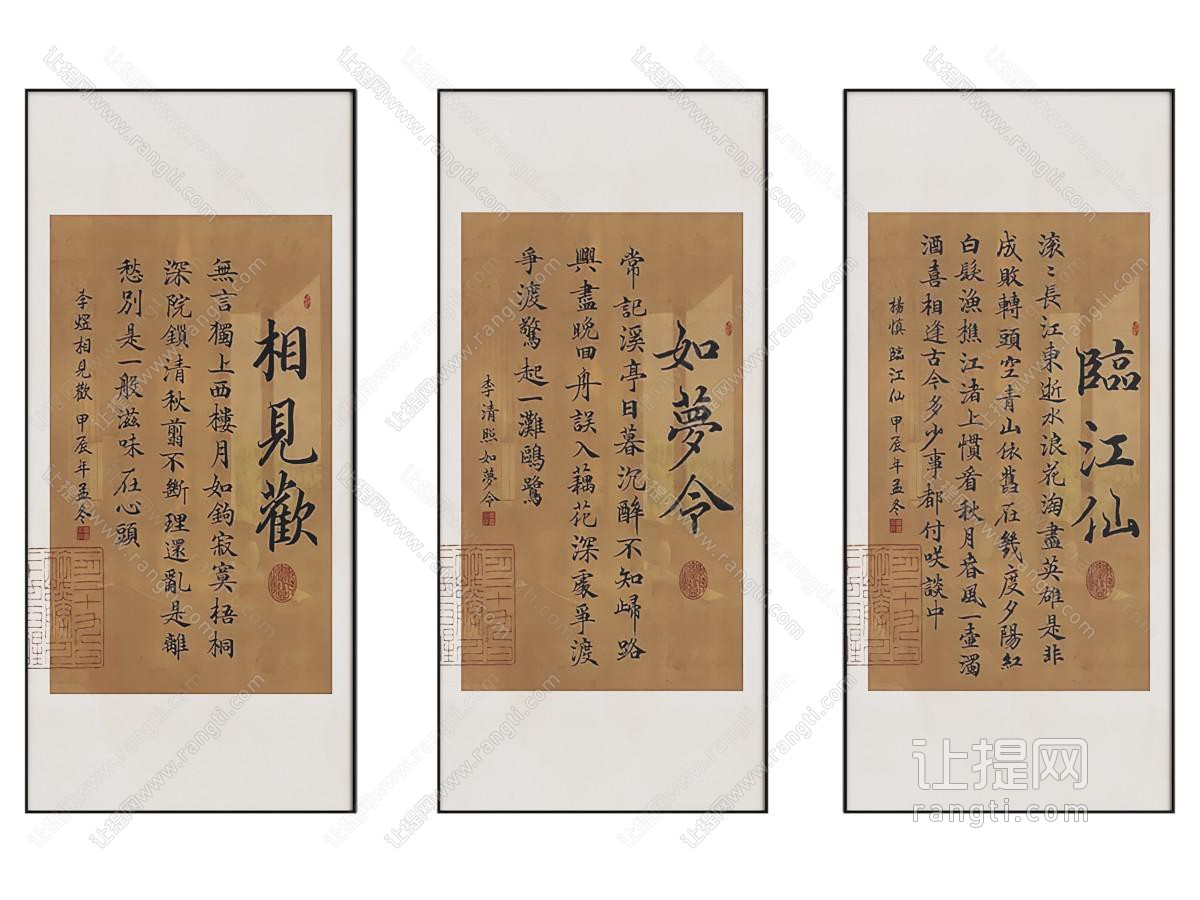 相見歡
無言獨上西樓月如鉤寂寞梧桐
深院鎖清秋翦不斷理還亂是離
愁別是一般滋味在心頭
李煜相見歡甲辰年孟冬
如夢令
常記溪亭日暮沉醉不知歸路
興盡晚回舟誤入藕花深處爭渡
爭渡驚起一灘鷗鷺
李清照如夢令
臨江仙
滾〻長江東逝水浪花淘盡英雄是非
成敗轉頭空青山依舊在幾度夕陽紅
白髮漁樵江渚上慣看秋月春風一壺濁
酒喜相逢古今多少事都付咲談中
楊慎臨江仙甲辰年孟冬
让提网
rangti.com
让提网www.rangti.com